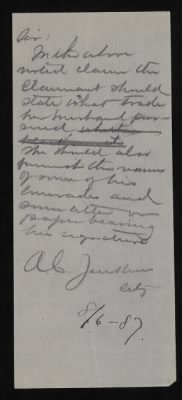 Sir:
In the above
noted claim the
Claimant should
state what trade
her husband pur
sued
She should also
furnish the names
of some of his
comrades and
some letter or
paper bearing
his signature
A C Jenkins
City
8/6-87.